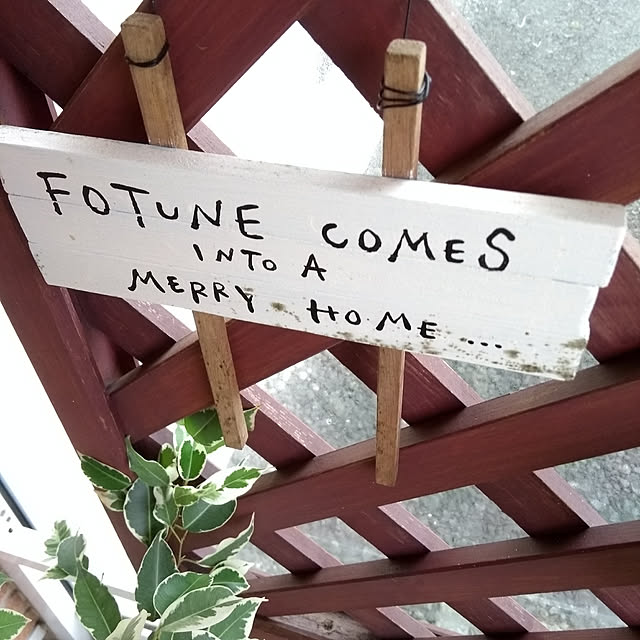 FOTUNE COMES
INTO A
MERRY HOME....